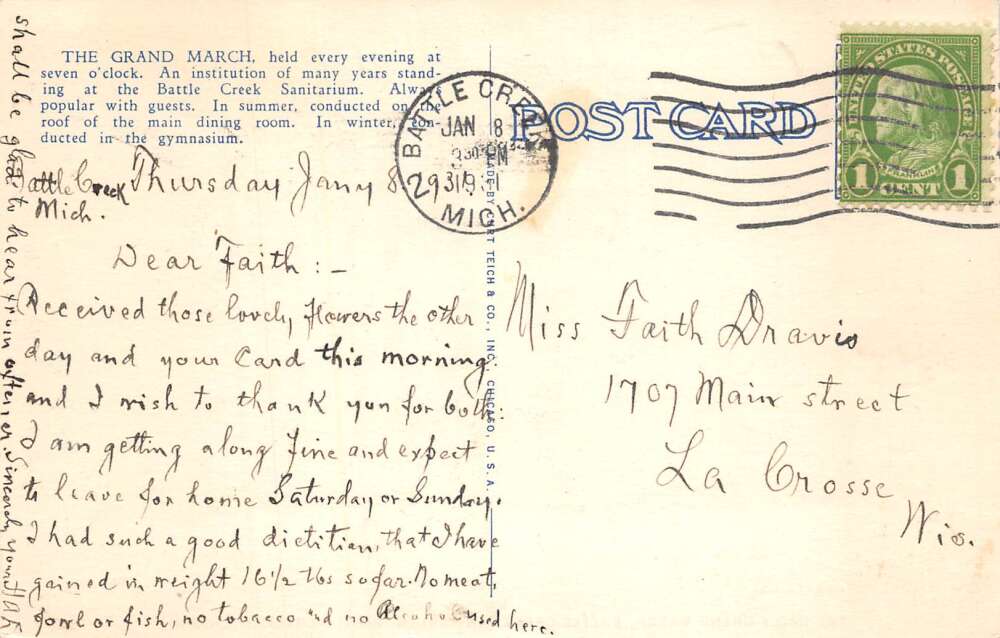 THE GRAND MARCH, held every evening at
seven o'clock. An institution of many years stand-
ing at the Battle Creek Sanitarium. Always
popular with guests. In summer, conducted on the
roof of the main dining room. In winter, con-
ducted in the gymnasium.
POST CARD
BATTLE CREEK
JAN 8
9 30 PM
1931
MICH.
UNITED STATES POSTAGE
FRANKLIN
1 CENT 1
MADE BY CURT TEICH & CO., INC., CHICAGO, U.S.A.
Battle Creek Thursday Jany 8,
Mich.
Dear Faith :-
Received those lovely flowers the other
day and your Card this morning
and I wish to thank you for both.
I am getting along fine and expect
to leave for home Saturday or Sunday.
I had such a good dietitian, that I have
gained in weight 16 1/2 lbs sofar. No meat,
fowl or fish, no tobacco and no Alcohol used here.
shall be glad to hear from often, er. Sincerely yours
Miss Faith Dravis
1707 Main street
La Crosse
Wis.